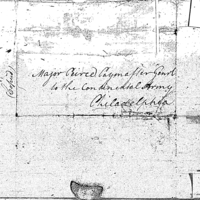 Major Peirce Paymaster Genl
to the Continental Army
Philadelphia